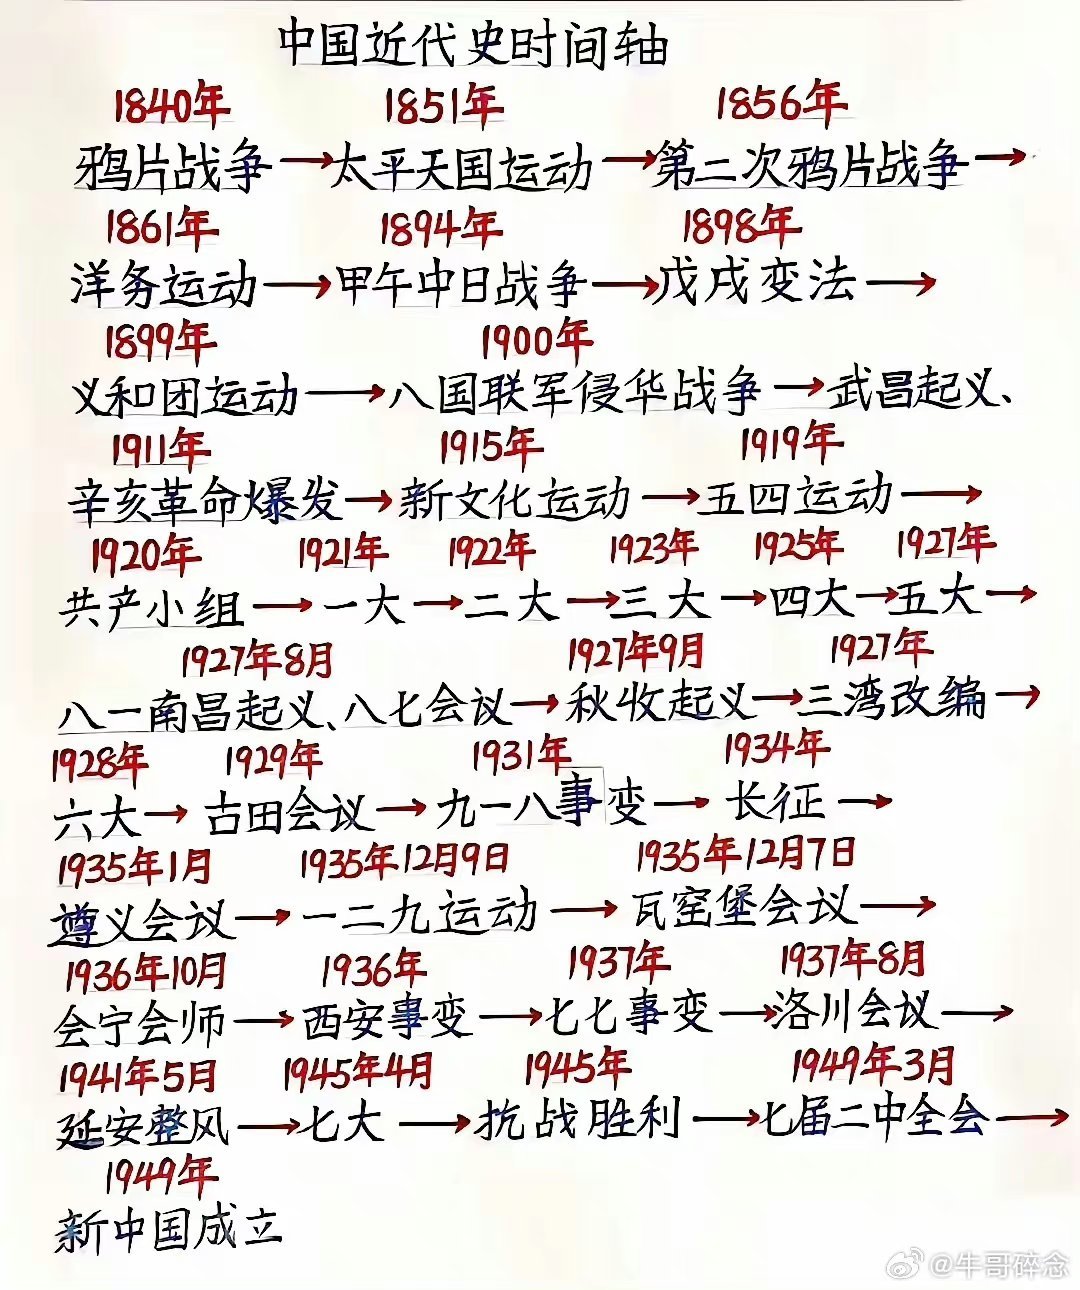 中国近代史时间轴
1840年 1851年 1856年
鸦片战争→太平天国运动→第二次鸦片战争→
1861年 1894年 1898年
洋务运动→甲午中日战争→戊戌变法→
1899年 1900年
义和团运动→八国联军侵华战争→武昌起义、
1911年 1915年 1919年
辛亥革命爆发→新文化运动→五四运动→
1920年 1921年 1922年 1923年 1925年 1927年
共产小组→一大→二大→三大→四大→五大→
1927年8月 1927年9月 1927年
八一南昌起义、八七会议→秋收起义→三湾改编→
1928年 1929年 1931年 1934年
六大→古田会议→九一八事变→长征→
1935年1月 1935年12月9日 1935年12月7日
遵义会议→一二九运动→瓦窑堡会议→
1936年10月 1936年 1937年 1937年8月
会宁会师→西安事变→七七事变→洛川会议→
1941年5月 1945年4月 1945年 1949年3月
延安整风→七大→抗战胜利→七届二中全会→
1949年
新中国成立
@牛哥碎念